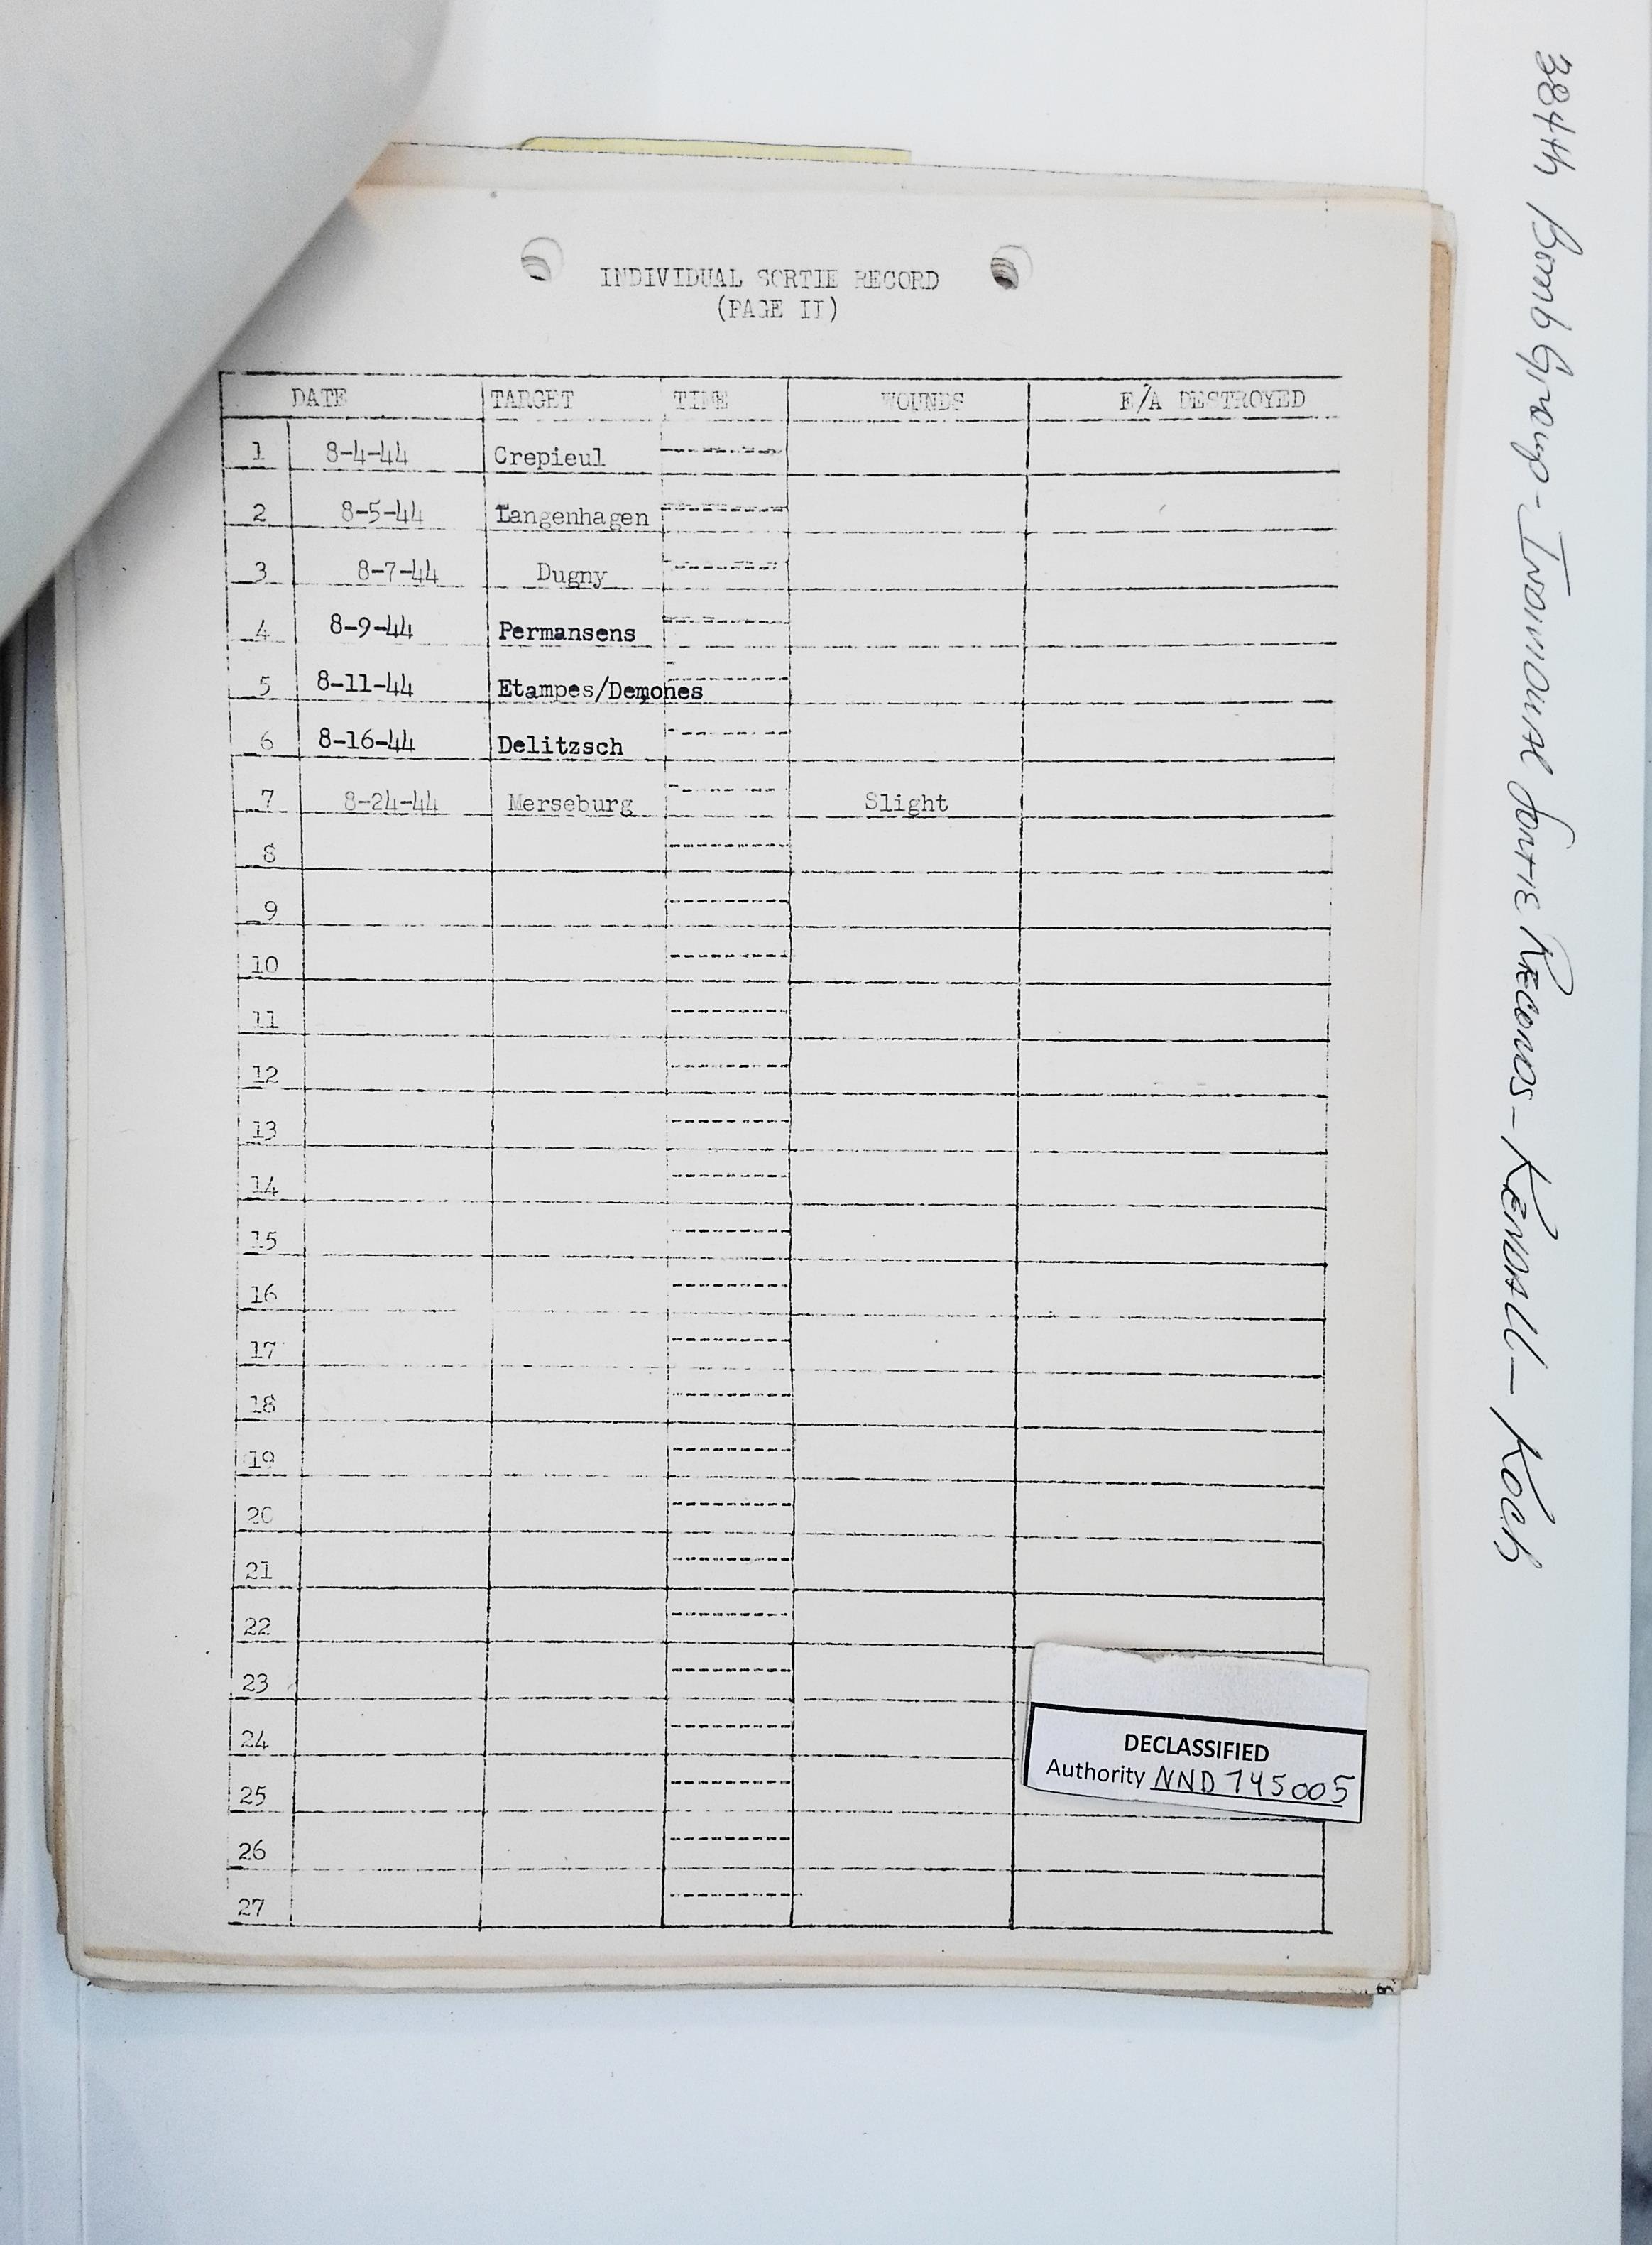 INDIVIDUAL SORTIE RECORD
(PAGE II)
DATE TARGET TIME WOUNDS E/A DESTROYED
1 8-4-44 Crepieul
2 8-5-44 Langenhagen
3 8-7-44 Dugny
4 8-9-44 Permansens
5 8-11-44 Etampes/Demones
6 8-16-44 Delitzsch
7 8-24-44 Merseburg Slight
8
9
10
11
12
13
14
15
16
17
18
19
20
21
22
23
24
25
26
27
DECLASSIFIED
Authority NND 745005
384th Bomb Group - Individual Sortie Records - Kendall - Koch